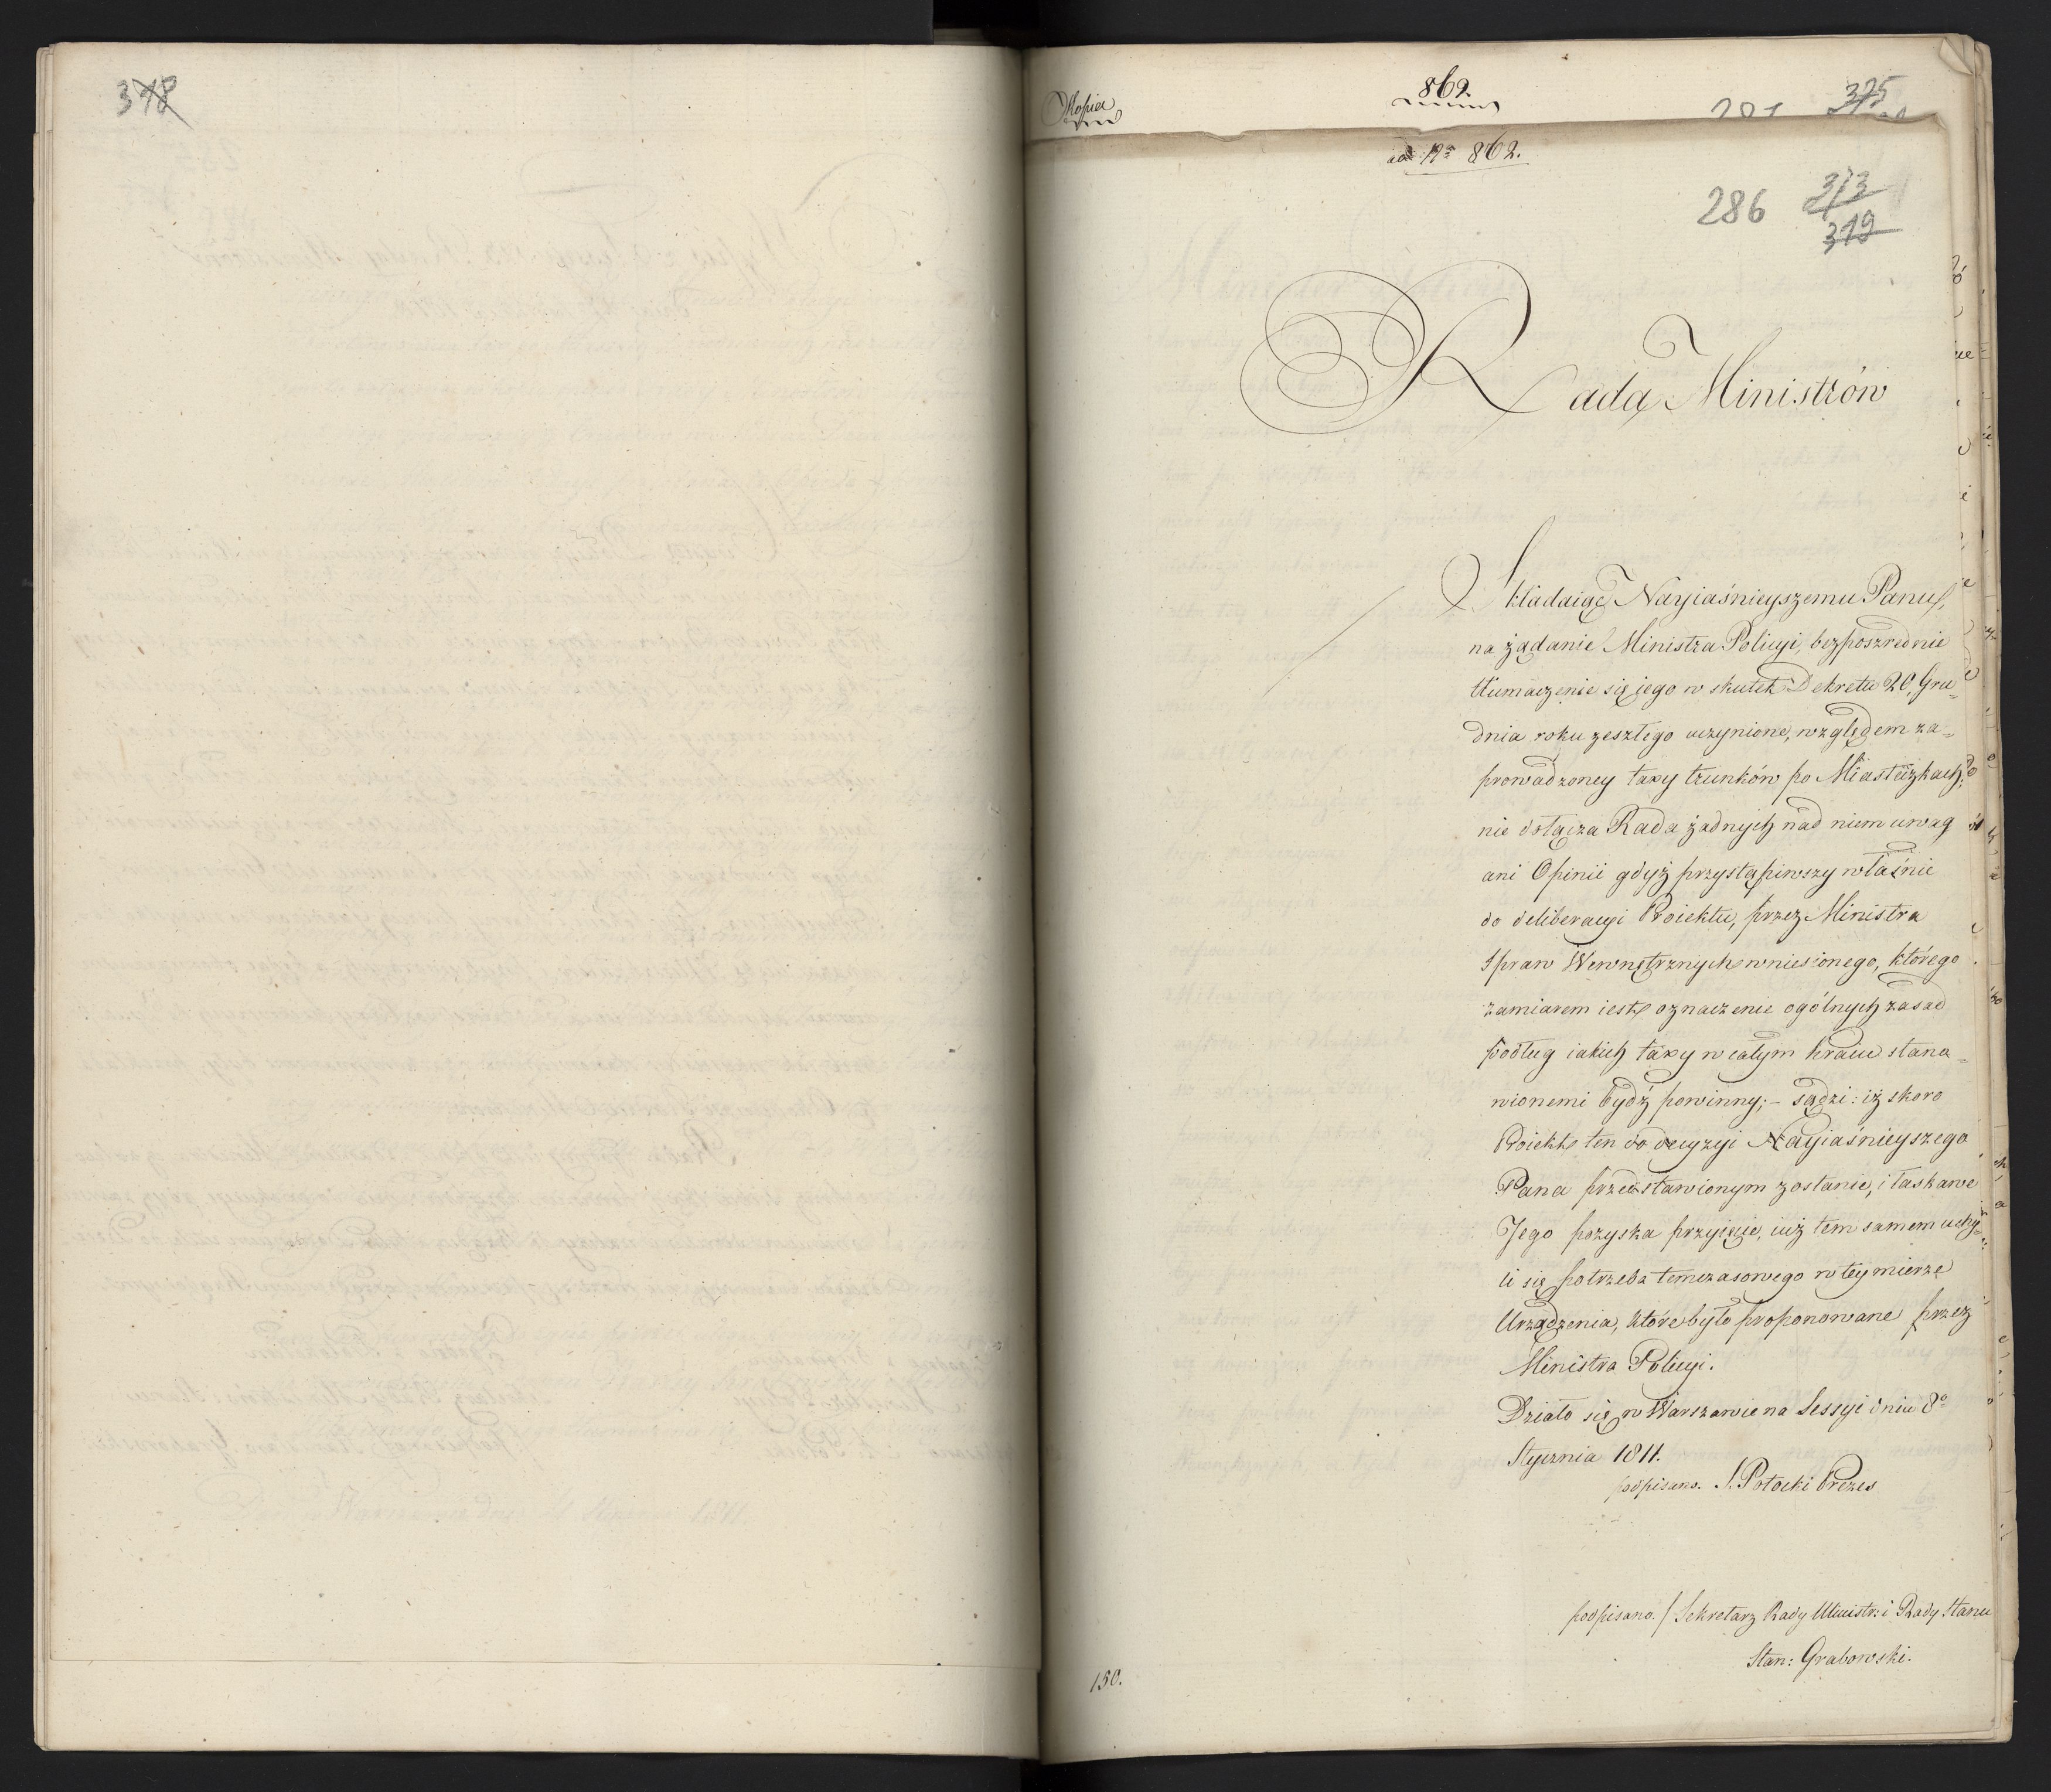 318
Kopia
862.
375
ad Nº 862.
286 313
319
Rada Ministrów
Składaiąc Nayiaśnieyszemu Panu,
na żądanie Ministra Policyi, bezposzrednie
tłumaczenie się iego w skutek Dekretu 20. Gru„
dnia roku zeszłego uczynione, względem za„
prowadzoney taxy trunków po Miasteczkach,
nie dołącza Rada żadnych nad niem uwag
ani Opinii gdyż przystąpiwszy właśnie
do deliberacyi Proiektu, przez Ministra
Spraw Wewnętrznych wniesionego, którego
zamiarem iest oznaczenie ogólnych zasad
podług iakich taxy w całym kraiu stano„
wionemi bydź powinny; – sądzi: iż skoro
Proiekt ten do decyzyi Nayiaśnieyszego
Pana przedstawionym zostanie, i łaskawe
Jego pozyska przyięcie, iuż tem samem uchy„
li się potrzeba temczasowego w tey mierze
Urządzenia, które było proponowane przez
Ministra Policyi.
Działo się w Warszawie na Sessyi dniu 8º
Stycznia 1811.
podpisano. S. Potocki Prezes
podpisano. / Sekretarz Rady Ministr: i Rady Stanu
Stan: Grabowski.
150.